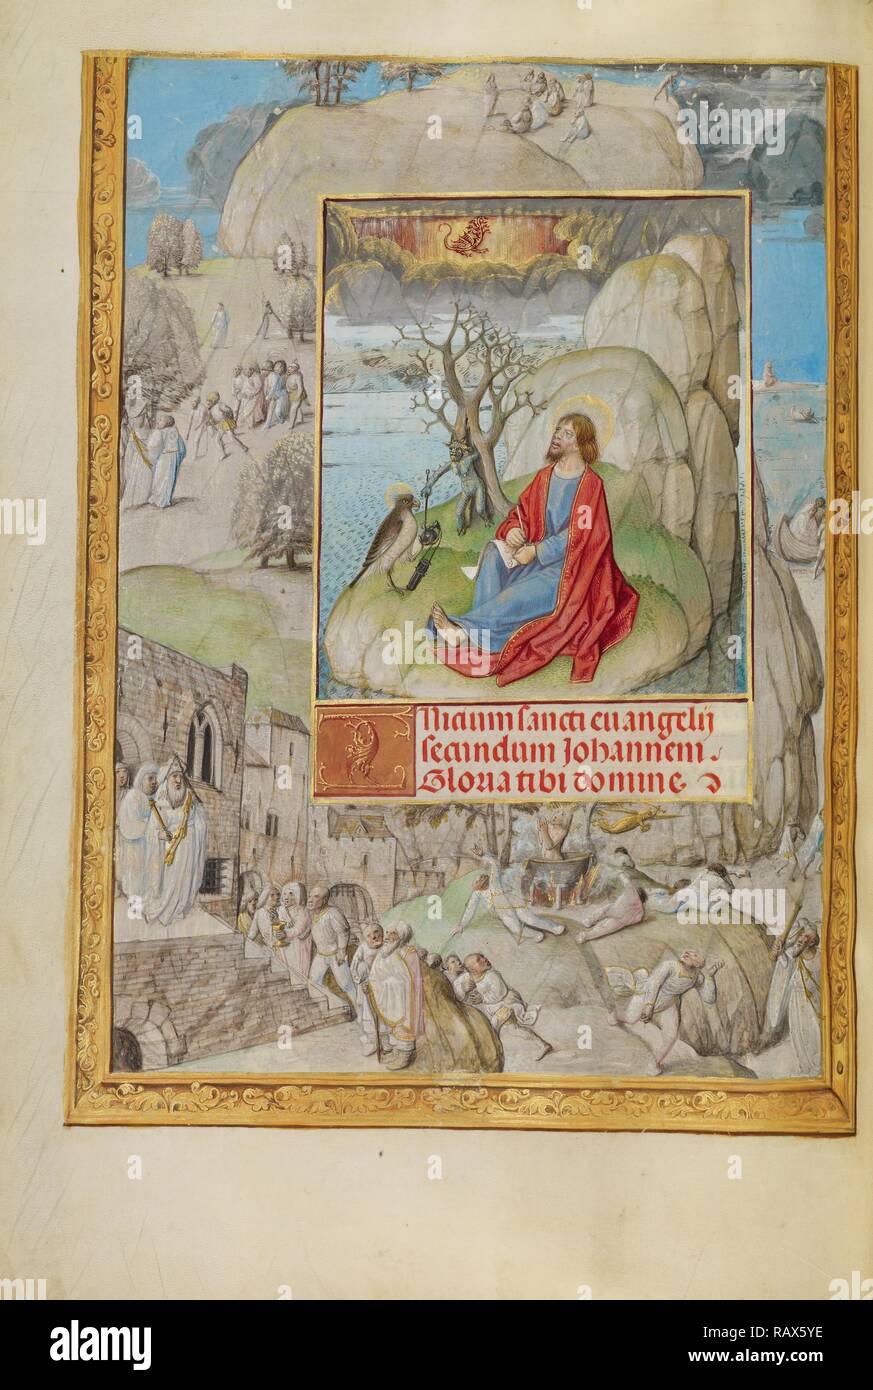 INicium sancti euangelij
secundum Johannem.
Gloria tibi domine
alamy
Image ID: RAX5YE
www.alamy.com